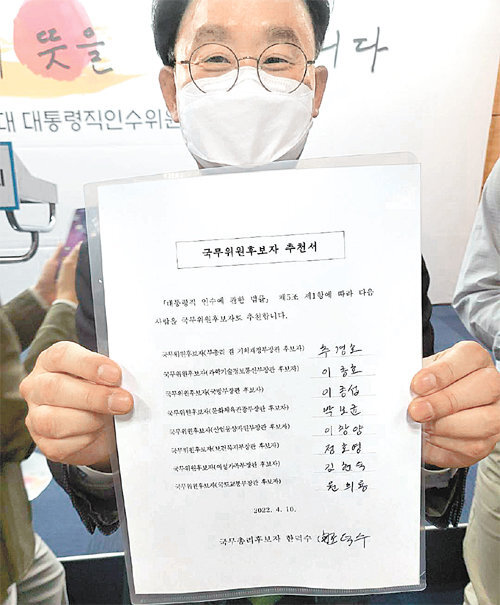 뜻을 니다
대 대통령직인수위원
국무위원후보자 추천서
「대통령직 인수에 관한 법률」 제5조 제1항에 따라 다음
사람을 국무위원후보자로 추천합니다.
국무위원후보자(부총리 겸 기획재정부장관 후보자) 추경호
국무위원후보자(과학기술정보통신부장관 후보자) 이종호
국무위원후보자(국방부장관 후보자) 이종섭
국무위원후보자(문화체육관광부장관 후보자) 박보균
국무위원후보자(산업통상자원부장관 후보자) 이창양
국무위원후보자(보건복지부장관 후보자) 정호영
국무위원후보자(여성가족부장관 후보자) 김현숙
국무위원후보자(국토교통부장관 후보자) 원희룡
2022. 4. 10.
국무총리후보자 한덕수